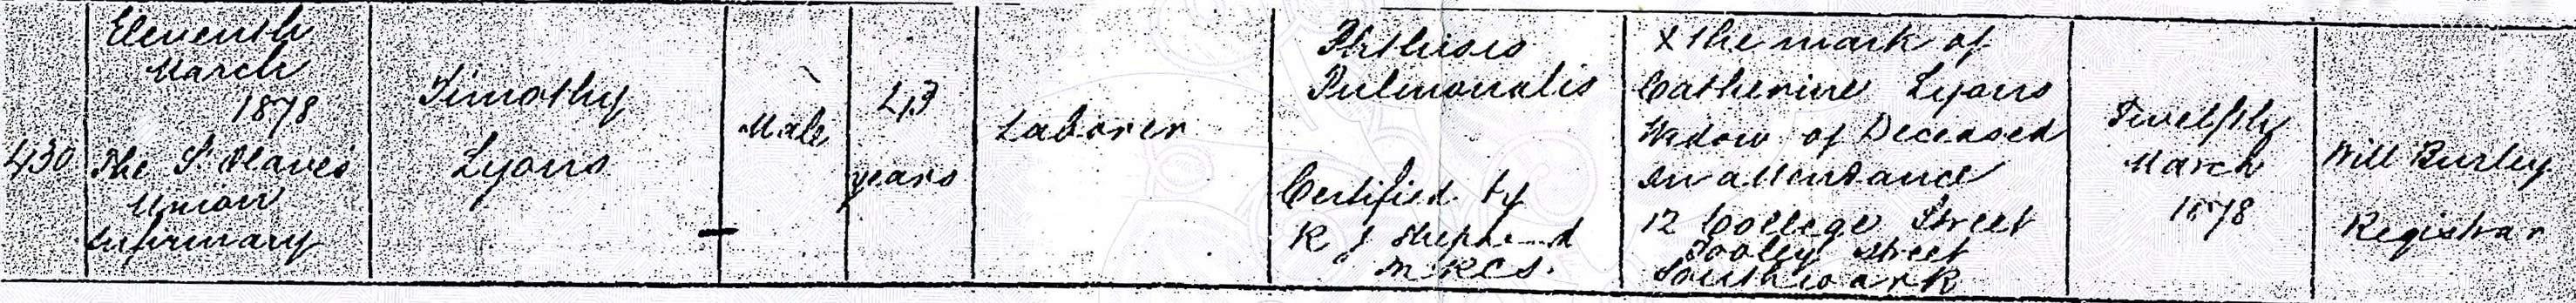 430
Eleventh
March
1878
The St Olave's
Union
Infirmary
Timothy
Lyons
Male
43
years
Laborer
Phthisis
Pulmonalis
Certified by
R J Shepherd
M R C S.
X The mark of
Catherine Lyons
Widow of Deceased
In attendance
12 College Street
Tooley Street
Southwark
Twelfth
March
1878
Will Burley
Registrar